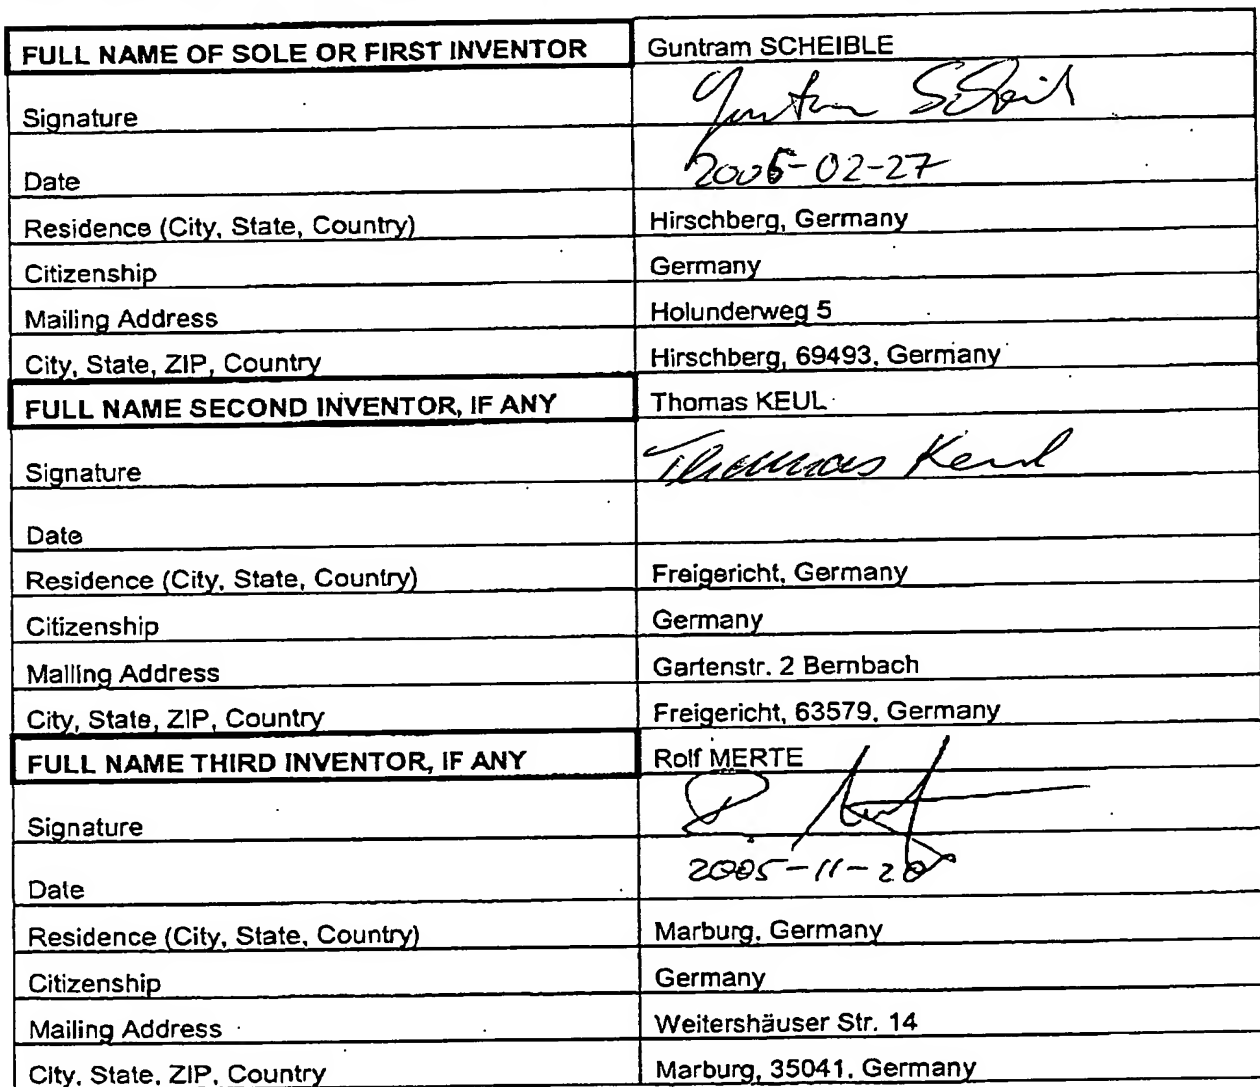 FULL NAME OF SOLE OR FIRST INVENTOR Guntram SCHEIBLE
Signature
Date 2006-02-27
Residence (City, State, Country) Hirschberg, Germany
Citizenship Germany
Mailing Address Holunderweg 5
City, State, ZIP, Country Hirschberg, 69493, Germany
FULL NAME SECOND INVENTOR, IF ANY Thomas KEUL
Signature Thomas Keul
Date
Residence (City, State, Country) Freigericht, Germany
Citizenship Germany
Mailing Address Gartenstr. 2 Bernbach
City, State, ZIP, Country Freigericht, 63579, Germany
FULL NAME THIRD INVENTOR, IF ANY Rolf MERTE
Signature
Date 2005-11-20
Residence (City, State, Country) Marburg, Germany
Citizenship Germany
Mailing Address Weitershäuser Str. 14
City, State, ZIP, Country Marburg, 35041, Germany